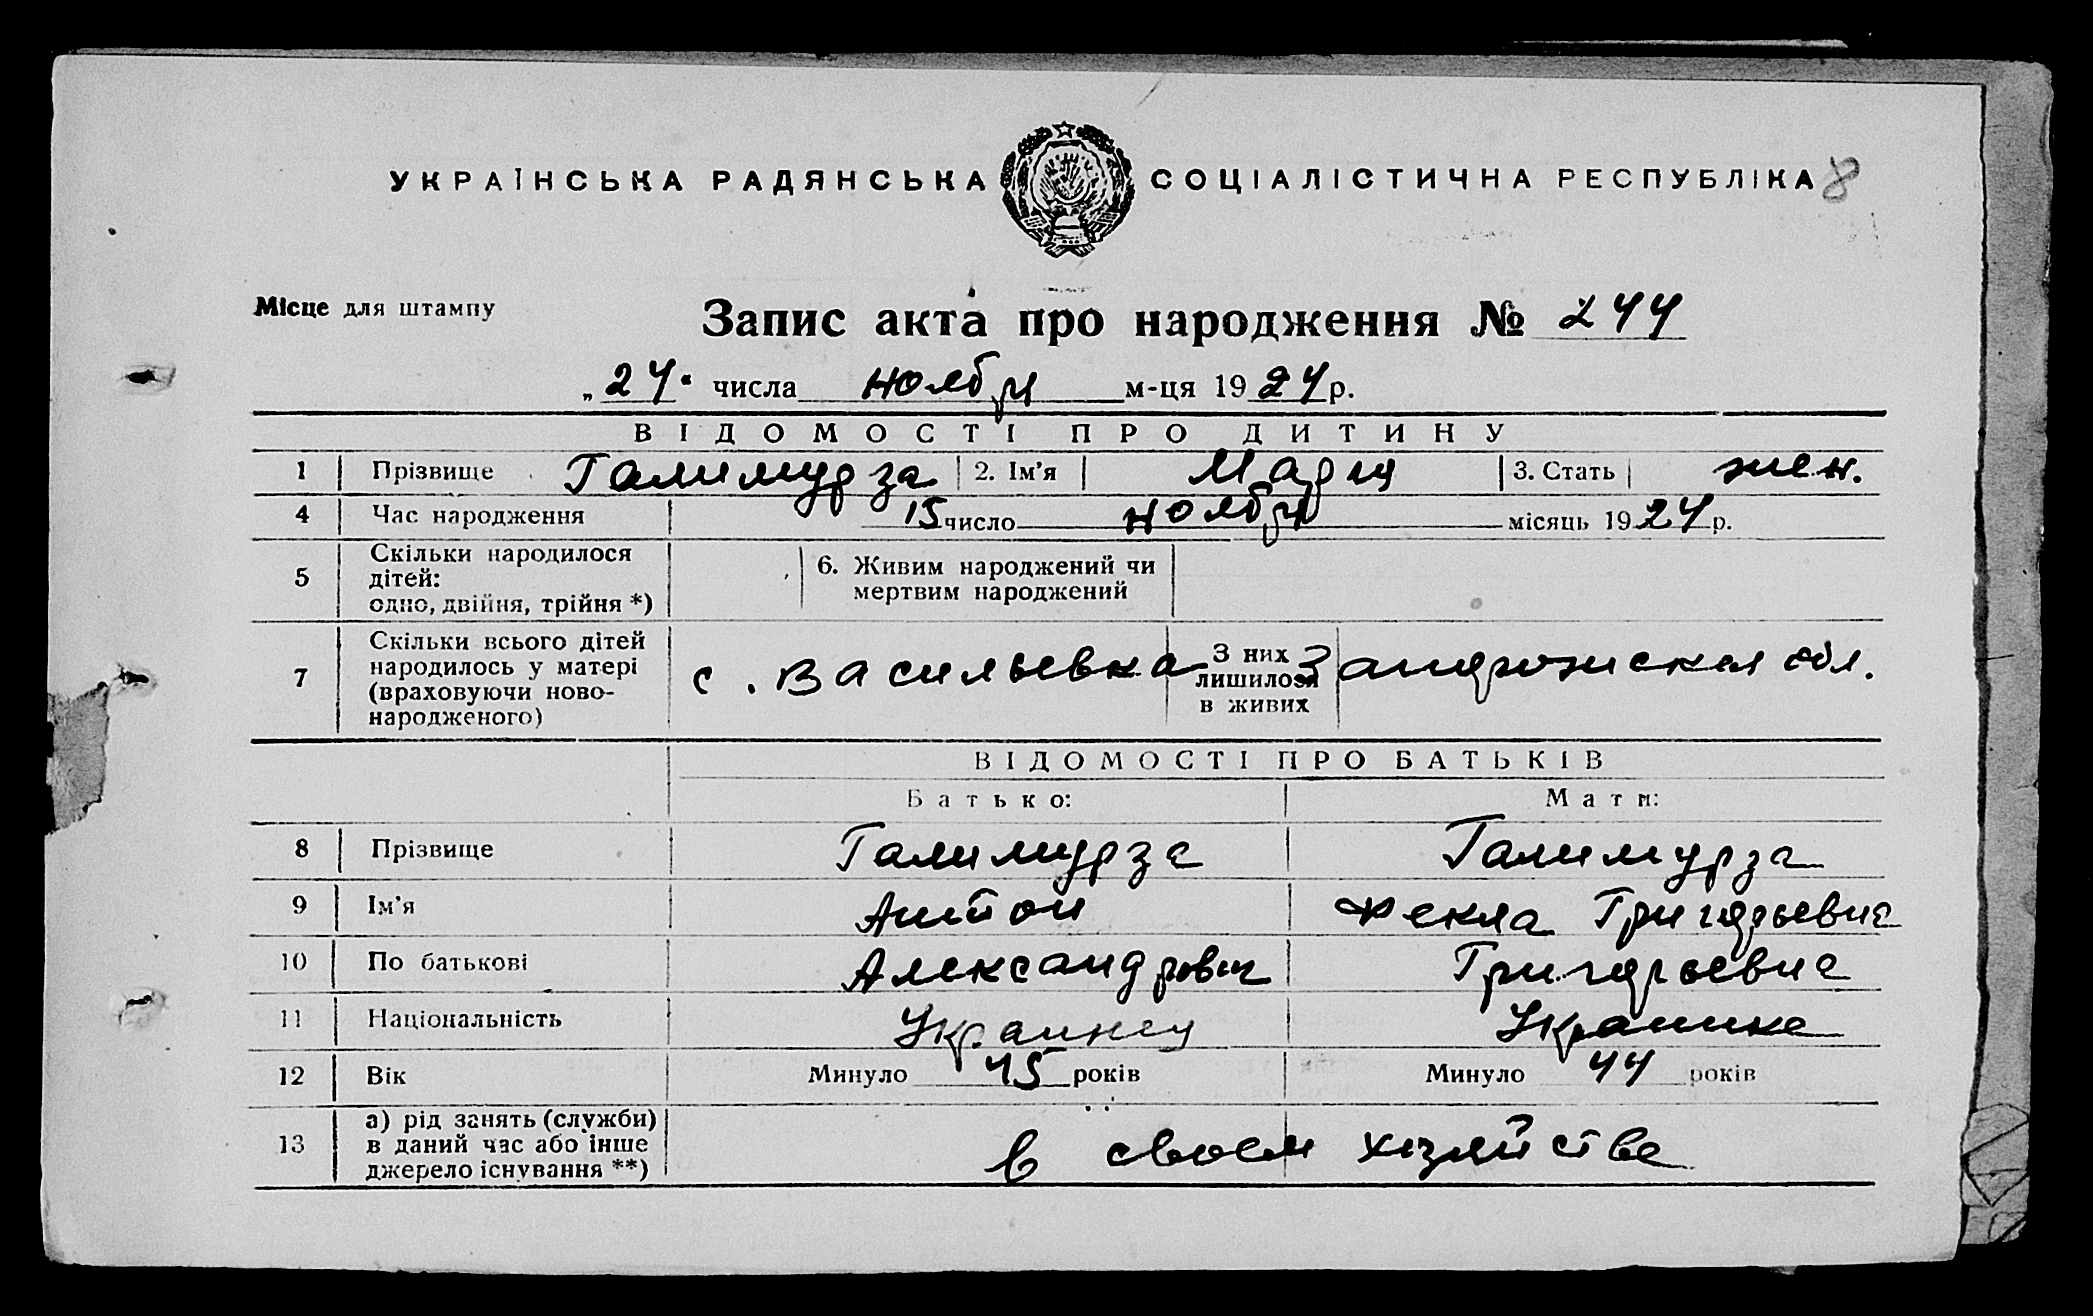 УКРАЇНСЬКА РАДЯНСЬКА СОЦІАЛІСТИЧНА РЕСПУБЛІКА 8
Місце для штампу
Запис акта про народження № 244
„24" числа ноября м-ця 1924 р.
ВІДОМОСТІ ПРО ДИТИНУ
1 Прізвище Галимурза 2. Ім'я Мария 3. Стать жен.
4 Час народження 15 число ноября місяць 1924 р.
5 Скільки народилося дітей: одно, двійня, трійня *) 6. Живим народжений чи мертвим народжений
7 Скільки всього дітей народилось у матері (враховуючи ново-народженого) с. Васильевка З них лишилося в живих Запорожская обл.
ВІДОМОСТІ ПРО БАТЬКІВ
Батько: Мати:
8 Прізвище Галимурза Галимурза
9 Ім'я Антон Фекла Григорьевна
10 По батькові Александрович Григорьевна
11 Національність Украинец Украинка
12 Вік Минуло 45 років Минуло 44 років
13 а) рід занять (служби) в даний час або інше джерело існування **) в своем хозяйстве